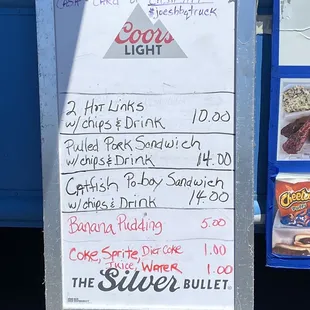 CASH CARD
@joesbbqtruck
Coors
LIGHT
2 Hot Links
w/chips & Drink 10.00
Pulled Pork Sandwich
w/chips & Drink 14.00
Catfish Po-boy Sandwich
w/chips & Drink 14.00
Banana Pudding 5.00
Coke, Sprite, Diet Coke 1.00
Juice, Water 1.00
THE Silver BULLET
Cheetos